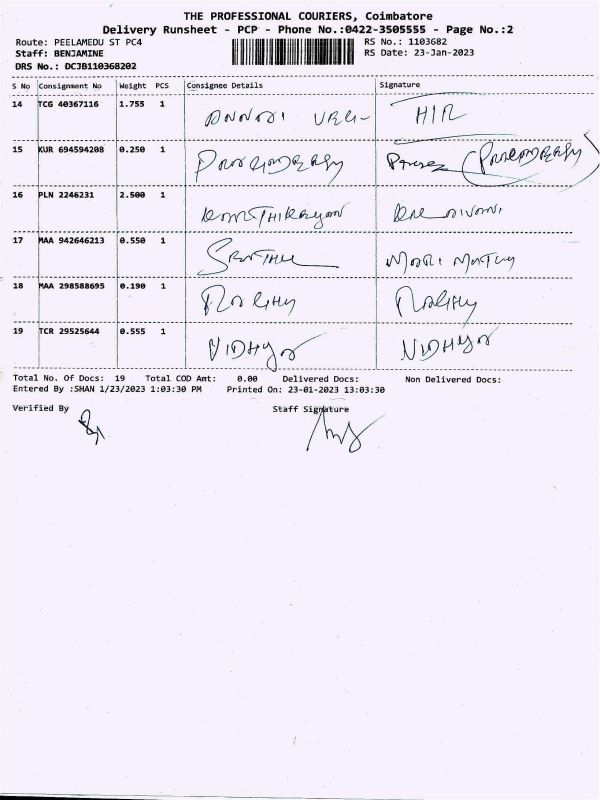 THE PROFESSIONAL COURIERS, Coimbatore
Delivery Runsheet - PCP - Phone No.:0422-3505555 - Page No.:2
Route: PEELAMEDU ST PC4
RS No.: 1103682
Staff: BENJAMINE
RS Date: 23-Jan-2023
DRS No.: DCJB110368202
S No Consignment No Weight PCS Consignee Details Signature
14 TCG 40367116 1.755 1
15 KUR 694594208 0.250 1
16 PLN 2246231 2.500 1
17 MAA 942646213 0.550 1
18 MAA 298588695 0.190 1
19 TCR 29525644 0.555 1 VIDHYA VIDHYA
Total No. Of Docs: 19 Total COD Amt: 0.00 Delivered Docs: Non Delivered Docs:
Entered By :SHAN 1/23/2023 1:03:30 PM Printed On: 23-01-2023 13:03:30
Verified By Staff Signature